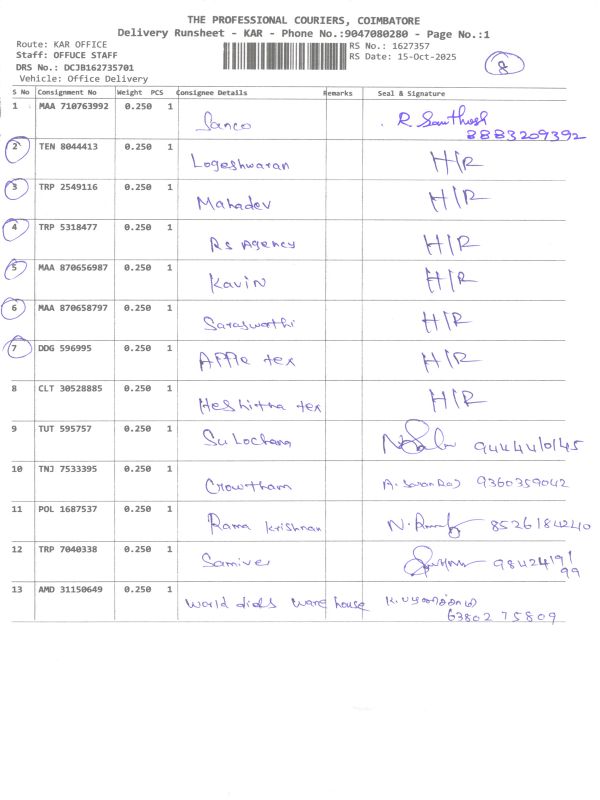 THE PROFESSIONAL COURIERS, COIMBATORE
Delivery Runsheet - KAR - Phone No.:9047080280 - Page No.:1
Route: KAR OFFICE
Staff: OFFUCE STAFF
DRS No.: DCJB162735701
Vehicle: Office Delivery
RS No.: 1627357
RS Date: 15-Oct-2025
8
S No Consignment No Weight PCS Consignee Details Remarks Seal & Signature
1 MAA 710763992 0.250 1 Sanco R Santhosh 8883209392
2 TEN 8044413 0.250 1 Logeshwaran H/R
3 TRP 2549116 0.250 1 Mahadev H/R
4 TRP 5318477 0.250 1 Rs Agency H/R
5 MAA 870656987 0.250 1 Kavin H/R
6 MAA 870658797 0.250 1 Saraswathi H/R
7 DDG 596995 0.250 1 APPle tex H/R
8 CLT 30528885 0.250 1 Heshitha tex H/R
9 TUT 595757 0.250 1 Sulochana 9444410145
10 TNJ 7533395 0.250 1 Gowtham 9360359042
11 POL 1687537 0.250 1 Rama Krishnan 8526184240
12 TRP 7040338 0.250 1 98424191
99
13 AMD 31150649 0.250 1 World ware house
63802 75809